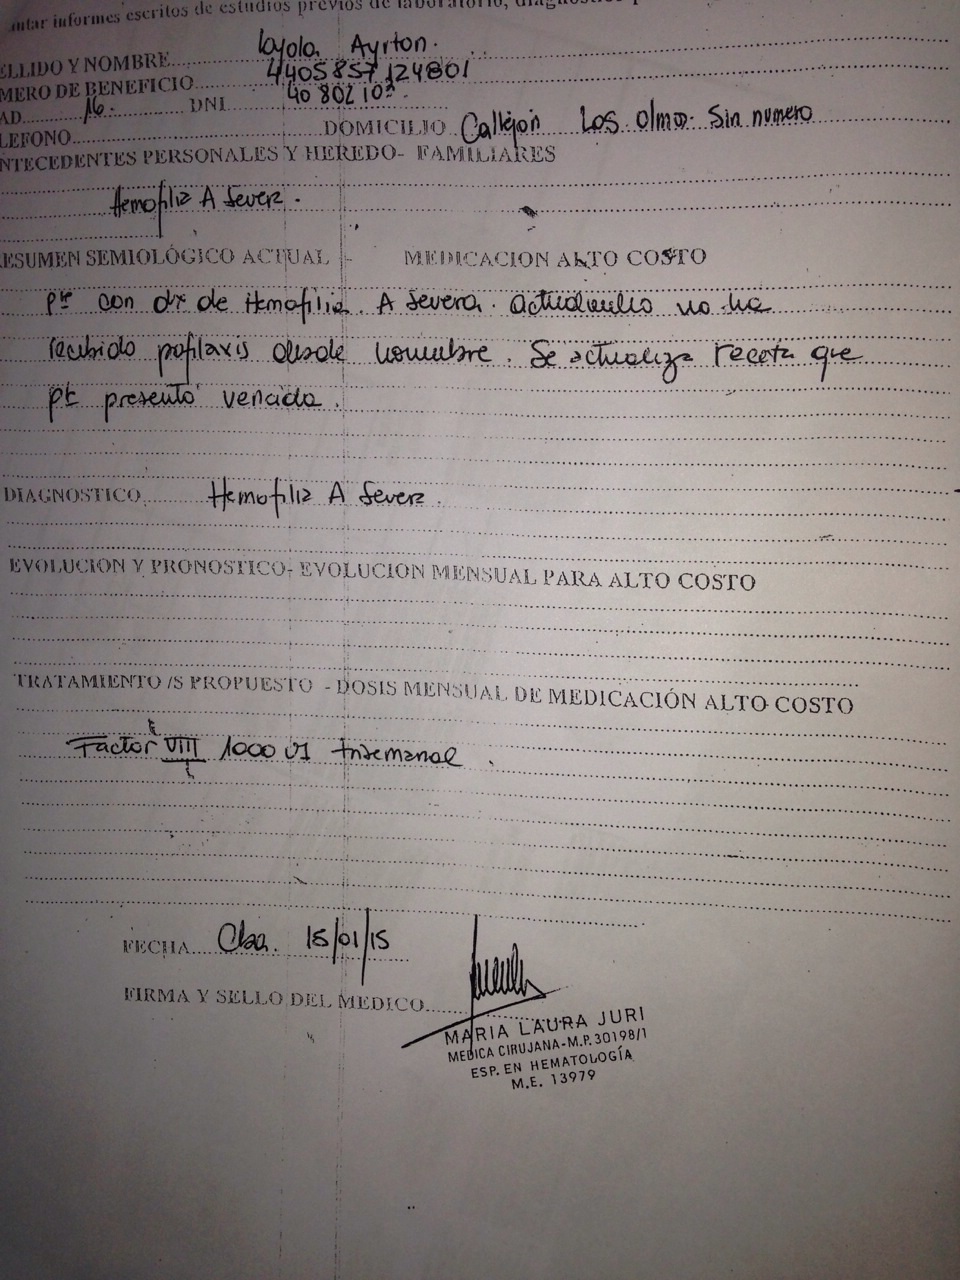 untar informes escritos de estudios previos de laboratorio,
ELLIDO Y NOMBRE Loyola Ayrton.
MERO DE BENEFICIO 4405857124801
AD 16. DNI 40802103
LEFONO DOMICILIO Callejon Los Olmo Sin numero
NTECEDENTES PERSONALES Y HEREDO- FAMILIARES
Hemofilia A Severa.
ESUMEN SEMIOLÓGICO ACTUAL - MEDICACION ALTO COSTO
Pte con dx de Hemofilia A Severa. Actualmente no ha
recibido pofilaxis desde noviembre. Se actualiza receta que
pte presentó vencida.
DIAGNOSTICO Hemofilia A Severa.
EVOLUCION Y PRONOSTICO- EVOLUCION MENSUAL PARA ALTO COSTO
TRATAMIENTO /S PROPUESTO - DOSIS MENSUAL DE MEDICACIÓN ALTO COSTO
Factor VIII 1000 UI trisemanal.
FECHA Cba. 15/01/15
FIRMA Y SELLO DEL MEDICO
MARIA LAURA JURI
MEDICA CIRUJANA-M.P.30198/1
ESP. EN HEMATOLOGÍA
M.E. 13979